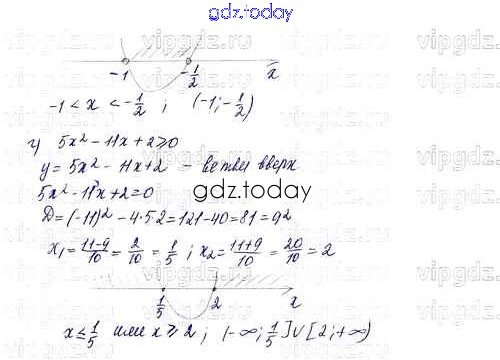 gdz.today
-1 -1/2 x
-1 < x < -1/2 ; (-1; -1/2)
г) 5x² - 11x + 2 ≥ 0
y = 5x² - 11x + 2 - ветви вверх
5x² - 11x + 2 = 0
gdz.today
D = (-11)² - 4·5·2 = 121 - 40 = 81 = 9²
x₁ = 11-9/10 = 2/10 = 1/5 ; x₂ = 11+9/10 = 20/10 = 2
1/5 2 x
x ≤ 1/5 или x ≥ 2 ; (-∞; 1/5] ∪ [2; +∞)